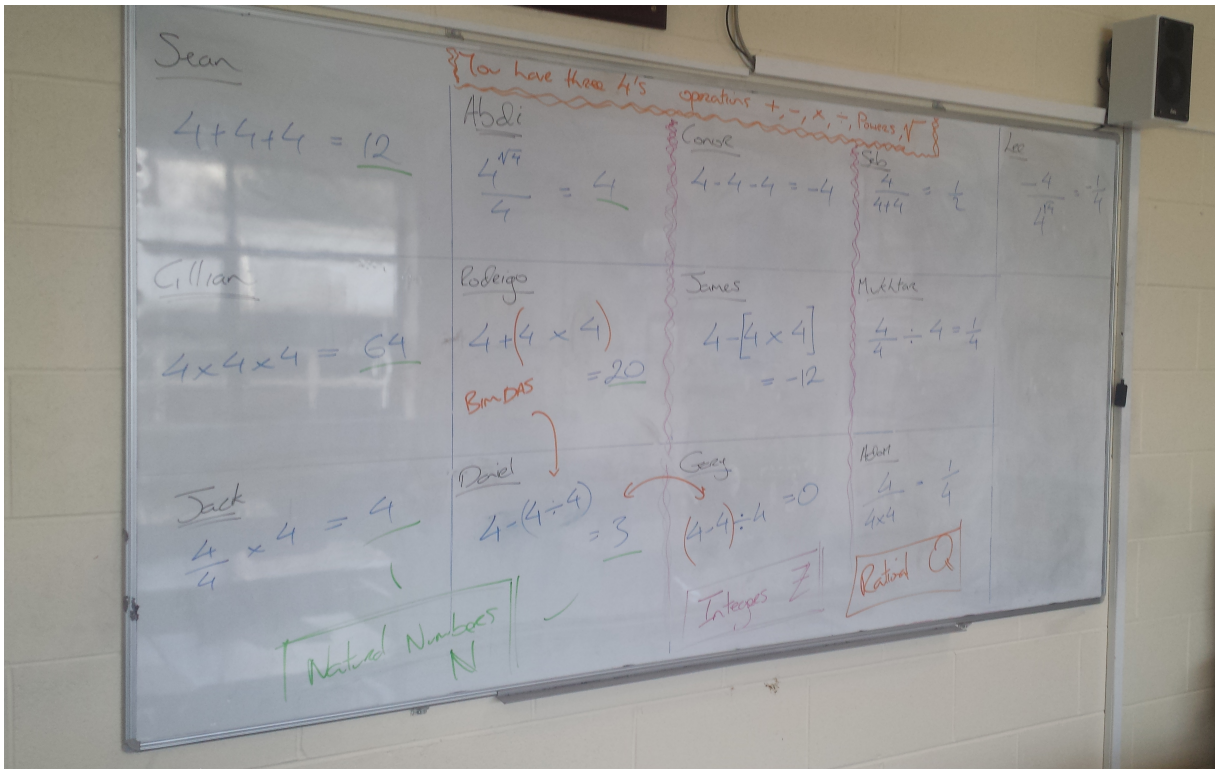 {You have three 4's operations +, -, x, ÷, Powers, √}
Sean
4+4+4 = 12
Gillian
4×4×4 = 64
Jack
4/4 × 4 = 4
Natural Numbers
N
Abdi
4^√4/4 = 4
Rodrigo
4+(4 × 4)
=20
BIMDAS
Daniel
4-(4÷4)
= 3
Conor
4-4-4 = -4
James
4-[4×4]
= -12
Gerry
(4-4)÷4 =0
Integers Z
Seb
4/4+4 = 1/2
Mukhtar
4/4 ÷ 4 = 1/4
Adam
4/4×4 = 1/4
Rational Q
Lee
-4/4^√4 = -1/4